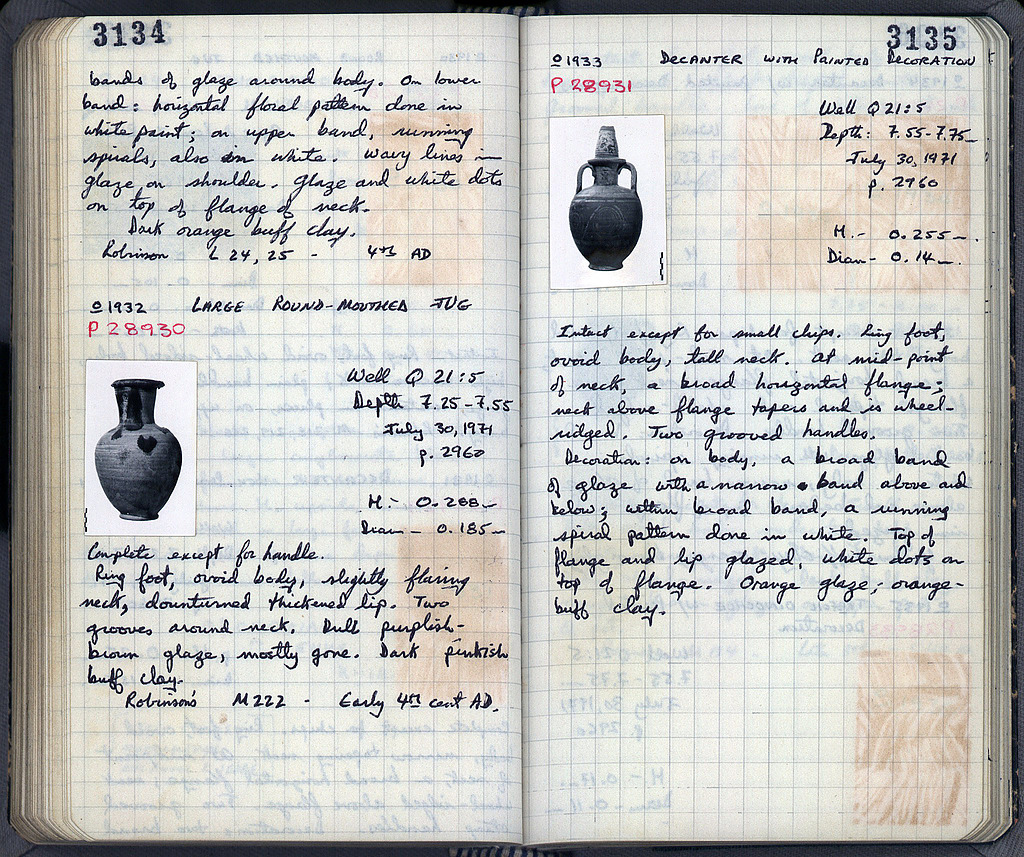 3134
bands of glaze around body. On lower
band: horizontal floral pattern done in
white paint; on upper band, running
spirals, also in white. Wavy lines in
glaze on shoulder. Glaze and white dots
on top of flange of neck.
Dark orange buff clay.
Robinson L 24, 25 - 4th AD
o 1932 LARGE ROUND-MOUTHED JUG
P 28930
Well Q 21:5
Depth 7.25-7.55
July 30, 1971
p. 2960
H.- 0.288
Diam - 0.185
Complete except for handle.
Ring foot, ovoid body, slightly flaring
neck, downturned thickened lip. Two
grooves around neck. Dull purplish-
brown glaze, mostly gone. Dark pinkish
buff clay.
Robinson's M222 - Early 4th cent AD.
3135
o 1933 DECANTER WITH PAINTED DECORATION
P 28931
Well Q 21:5
Depth: 7.55-7.75
July 30, 1971
p. 2960
H.- 0.255
Diam- 0.14
Intact except for small chips. Ring foot,
ovoid body, tall neck. At mid-point
of neck, a broad horizontal flange;
neck above flange tapers and is wheel-
ridged. Two grooved handles.
Decoration: on body, a broad band
of glaze with a narrow band above and
below; within broad band, a running
spiral pattern done in white. Top of
flange and lip glazed, white dots on
top of flange. Orange glaze; orange-
buff clay.